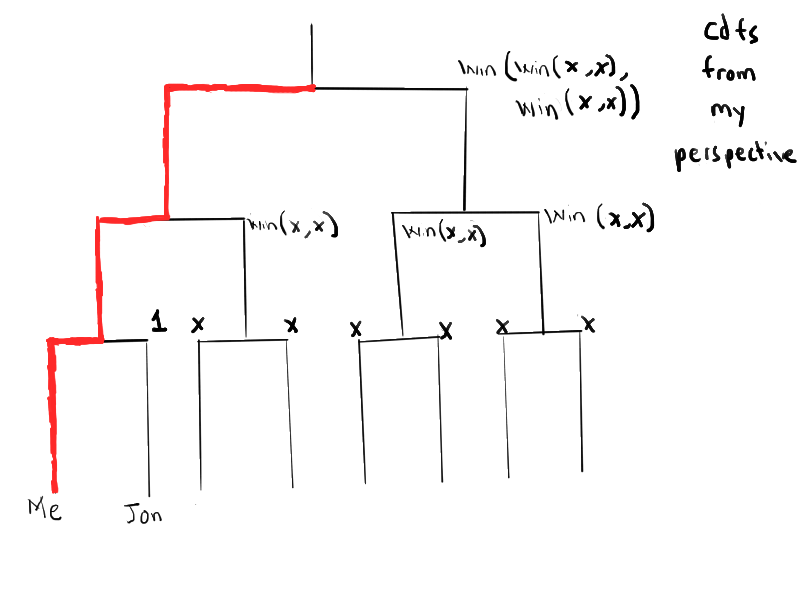 cdfs
from
my
perspective
Win (Win(x,x),
Win (x,x))
Win(x,x)
Win(x,x)
Win (x,x)
1 x x x x x x
Me Jon